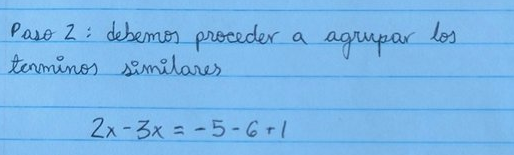 Paso 2: debemos proceder a agrupar los
terminos similares
2x - 3x = -5 - 6 + 1